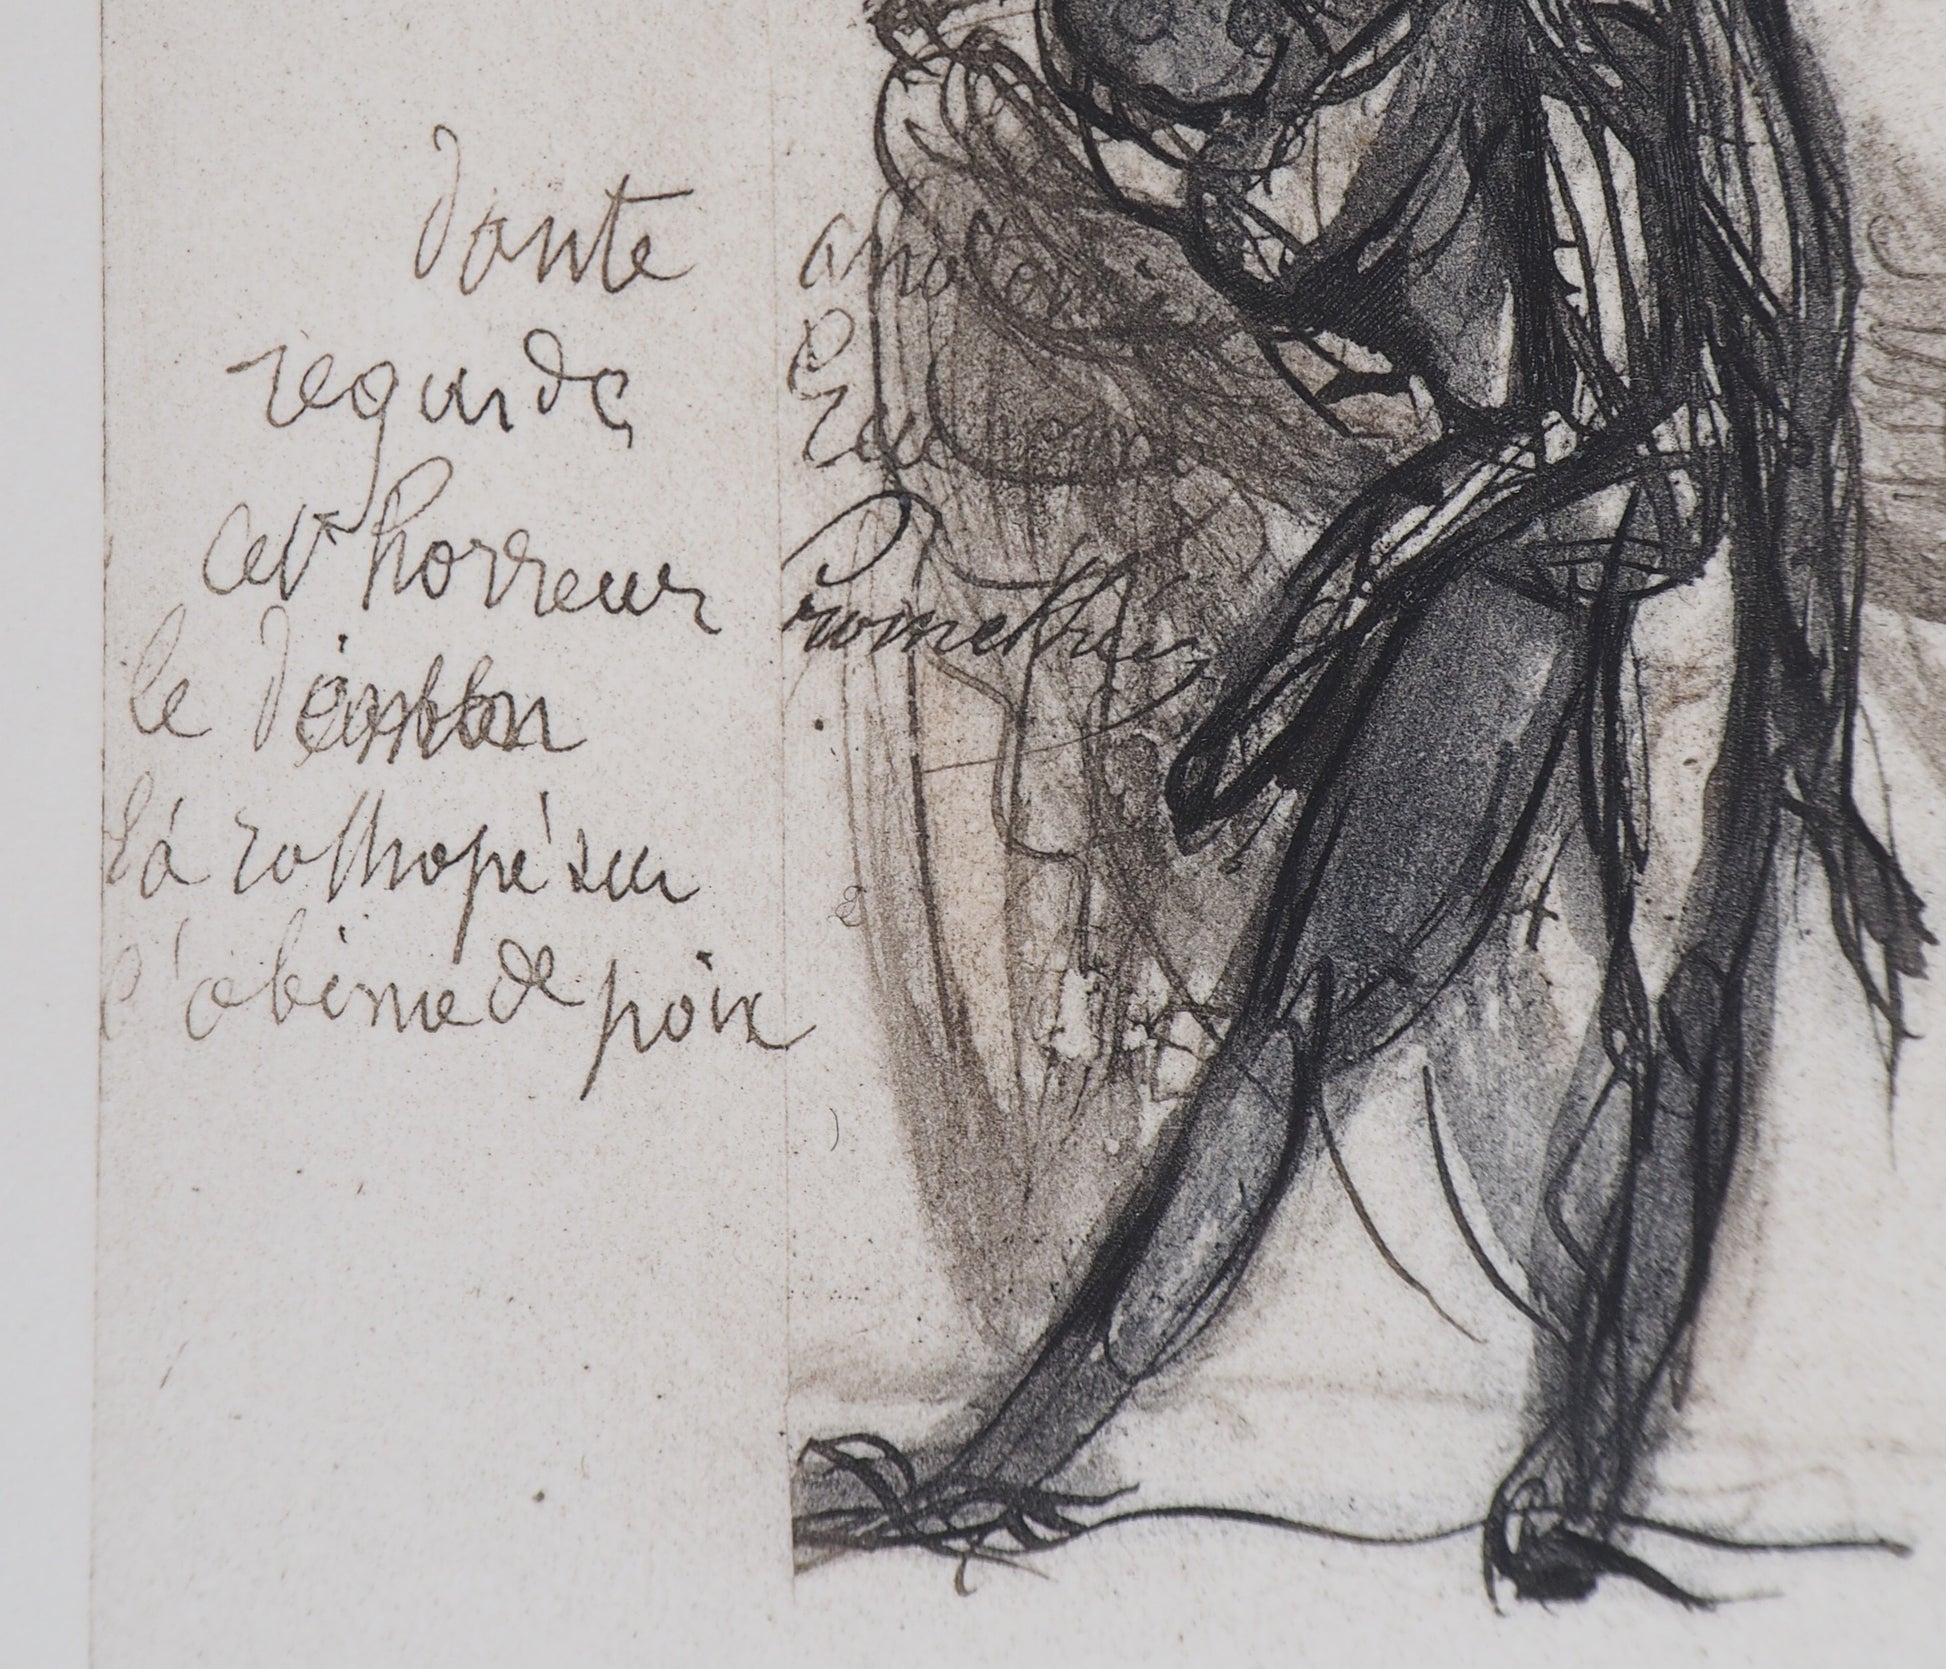 dante
regarde
cet horreur
le démon
l'a rathopé sur
l'abime de poix
Promethée